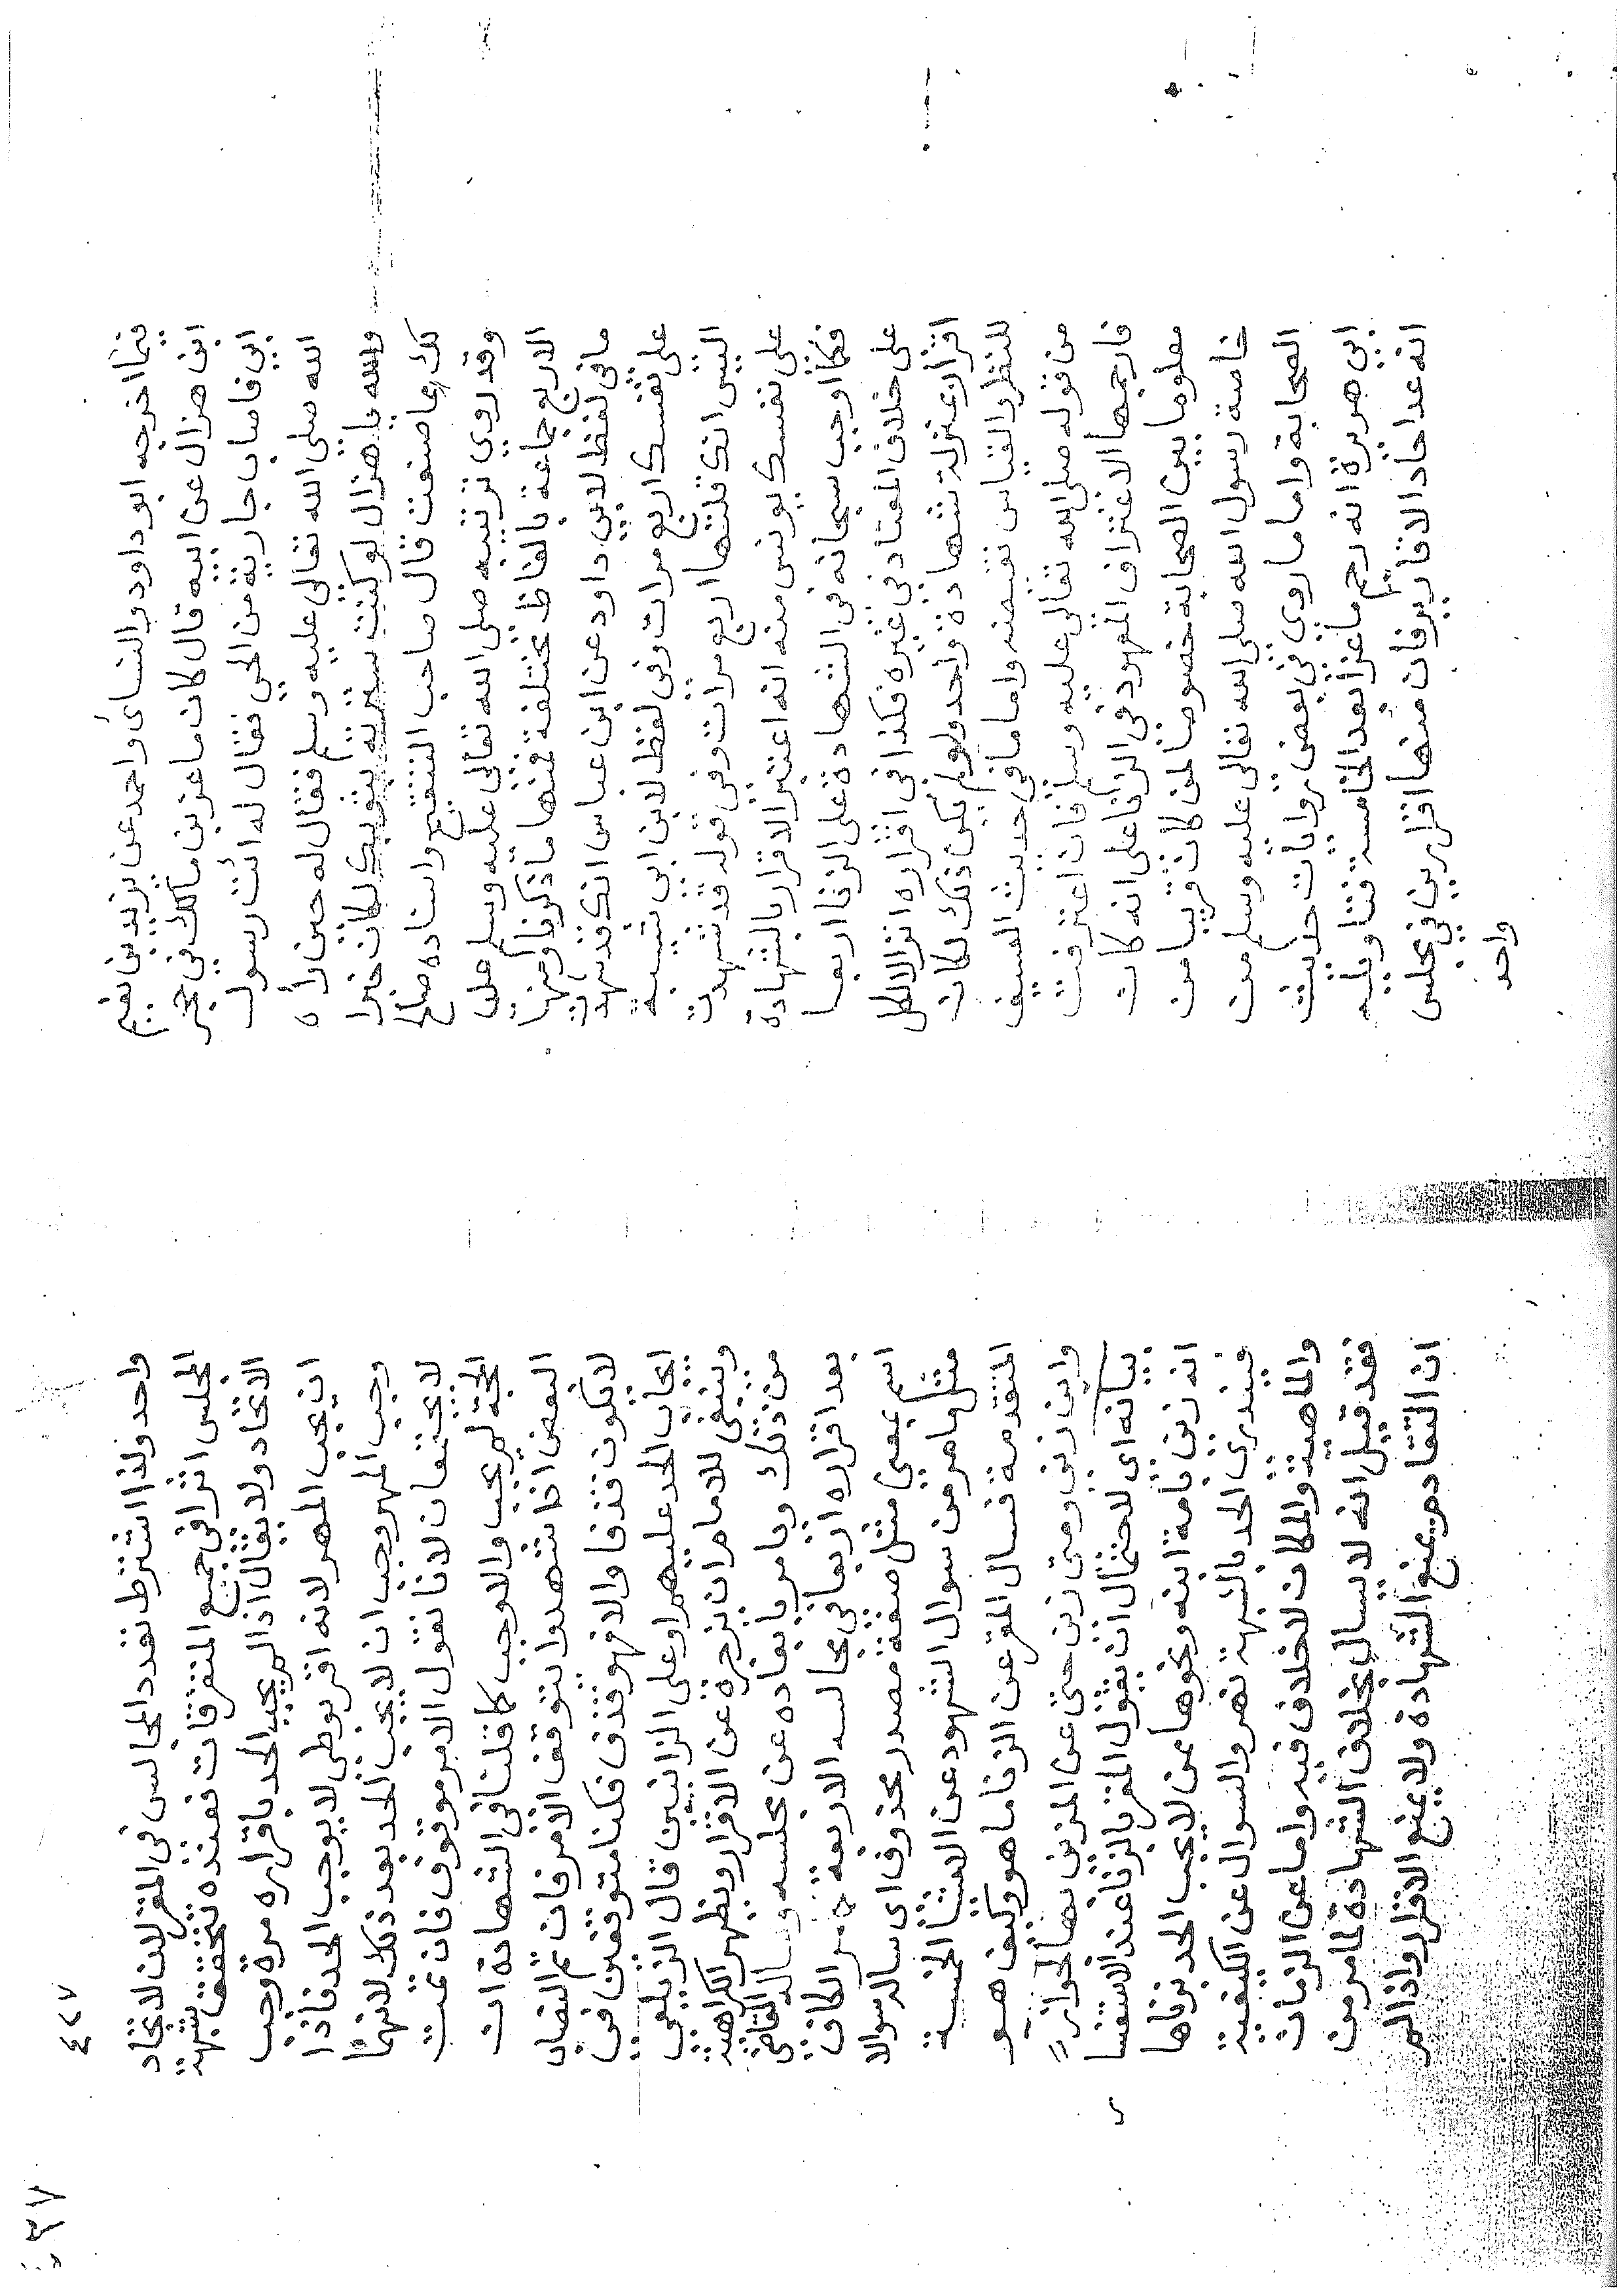 فيما اخرجه ابو داود والنسائ واحمد عن يزيد بن نعيم
ابن هزال عن ابيه قال كان ماعز بن مالك في حجر
ابي فاصاب جارية من الحي فقال له ائت رسول
الله صلي الله تعالي عليه وسلم فقال له حين راه
والله يا هزال لو كنت سترته بثوبك لكان خيرا
لك مما صنعت قال صاحب التنقيح واسناده صالح
وقد روي ترتيبه صلي الله تعالي عليه وسلم علي
الاربع جماعة بالفاظ مختلفة فمنها ما ذكرنا ومنها
ما في لفظ لابي داود عن ابن عباس انك قد شهدت
علي نفسك اربع مرات وفي لفظ لابن ابي شيبة
اليس انك قلتها اربع مرات وفي قوله قد شهدت
علي نفسك يونس منه انه اعتبر الاقرار بالشهادة
فكما اوجب سبحانه في الشهادة علي الزنا اربعا
علي خلاف المعتاد في غيره فكذا في اقراره انزالا لكل
اقرار بمنزلة شهادة واحد ولو لم يكن ذلك لكان
للنظر والقياس نقتضه واما ما في حديث العسيف
من قوله صلي الله تعالي عليه وسلم فان اعترفت
فارجمها الاعتراف المعهود في الزنا علي انه كان
معلوما بين الصحابة خصوصا لمن كان قريبا من
خاصة رسول الله صلي الله تعالي عليه وسلم من
الصحابة واما ما روي في بعض روايات حديث
ابي هريرة انه رجم ماعزا بعد الخامسة فتاويله
انه عد احاد الاقارير فان منها اقرارين في مجلس
واحد
٤٢٧
واحد ولذا اشترط تعدد المجالس في المقر لان لاتحاد
المجلس اثرا في جميع المتفرقات فعنده تتحقق شبهة
الاتحاد ولا يقال اذا لم يجب الحد باقراره مرة وجب
ان يجب المهر لانه اقر بوطي لا يوجب الحد فاذا
وجب المهر وجب ان لا يجب الحد بعد ذلك لانهما
لا يجتمعان لانا نقول الامر موقوف فان تمت
الحجة لم يجب والا وجب كما قلنا في الشهادة ان
البعض اذا شهدوا يتوقف الامر فان تم النصاب
لا يكون قذفا والا فهو قذف فكنا متوقفين في
ايجاب الحد عليهم او علي الزانيين قال الزيلعي
وينبغي للامام ان يزجره عن الاقرار ويظهر الكراهية
من ذلك ويامر بابعاده عن مجلسه وساله القاضي
بعد اقراره اربعا في مجالسه الاربعة كمر الكاف
اسم بمعني مثل صفة مصدر محذوف اي ساله سوالا
مثل ما مر من سوال الشهود عن الاشيا الخمسة
المتقدمة فسال المقر عن الزنا ما هو وكيف هو
واين زني ومتي زني حتي عن المزني بها لجواز
بيانه اي لاحتمال ان يقول المقر بالزنا عند الاستفسا
انه زني بامة ابنه ونحوها عن لا يجب الحد بزناها
فيندري الحد بالشبهة نهر والسوال عن الكيفية
والماهية والمكان لا خلاف فيه واما عن الزمان
فقد قيل انه لا يسال بخلاف الشهادة لما مر من
ان التقادم يمنع الشهادة ولا يمنع الاقرار واذا لم